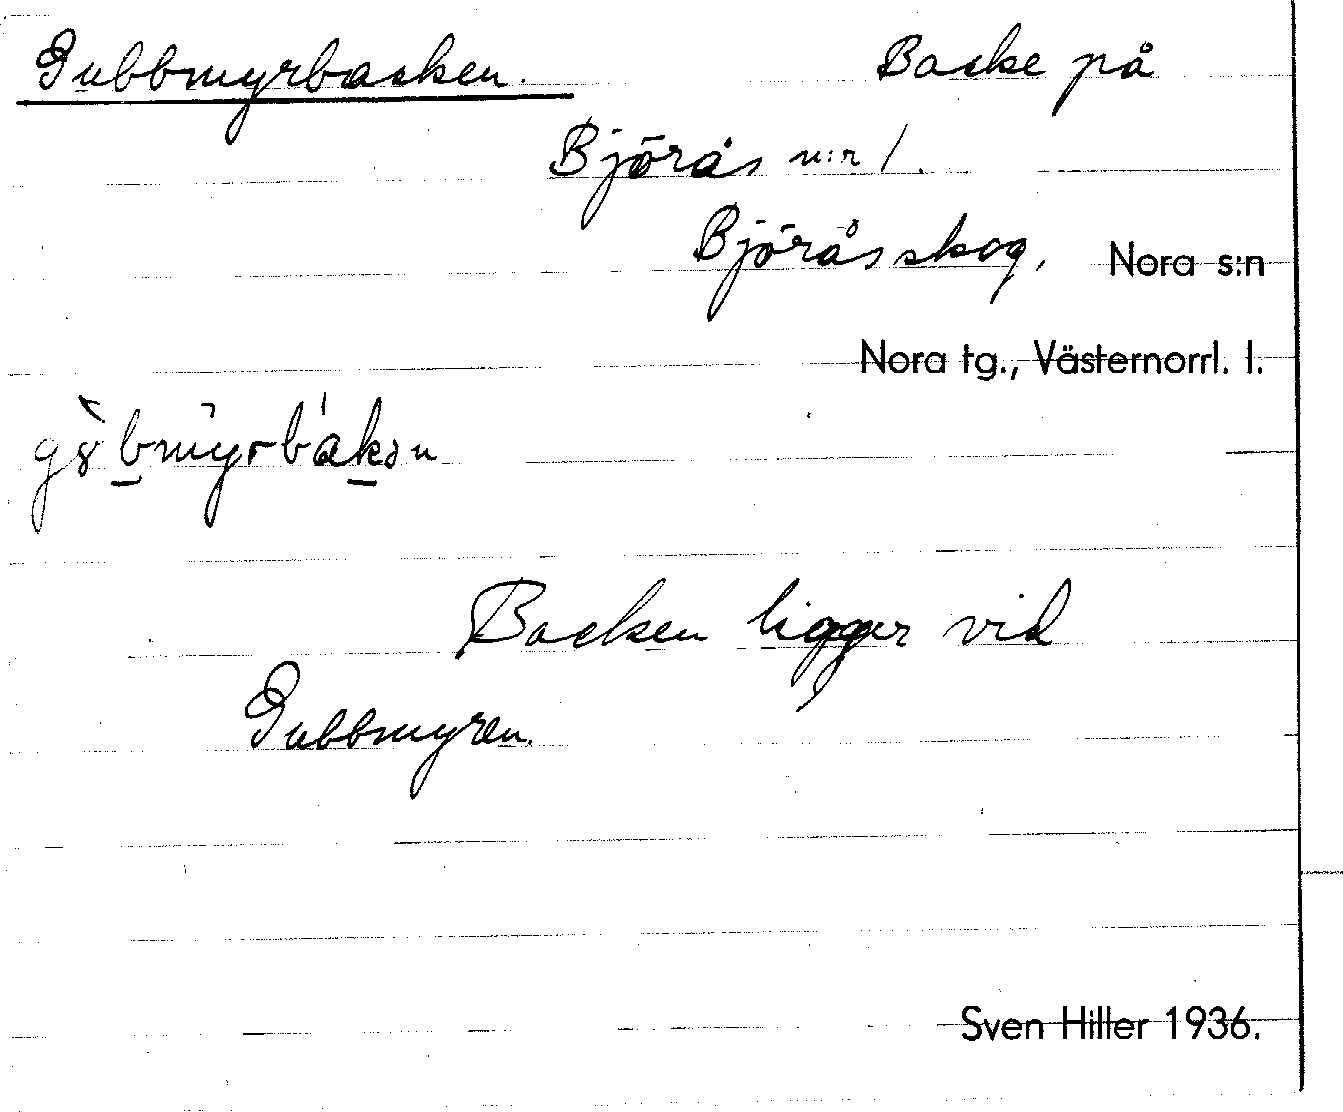 Gubbmyrbacken. Backe på
Björås n:r 1.
Björås skog, Nora s:n
Nora tg., Västernorrl. l.
Backen ligger vid
Gubbmyren.
Sven Hiller 1936.